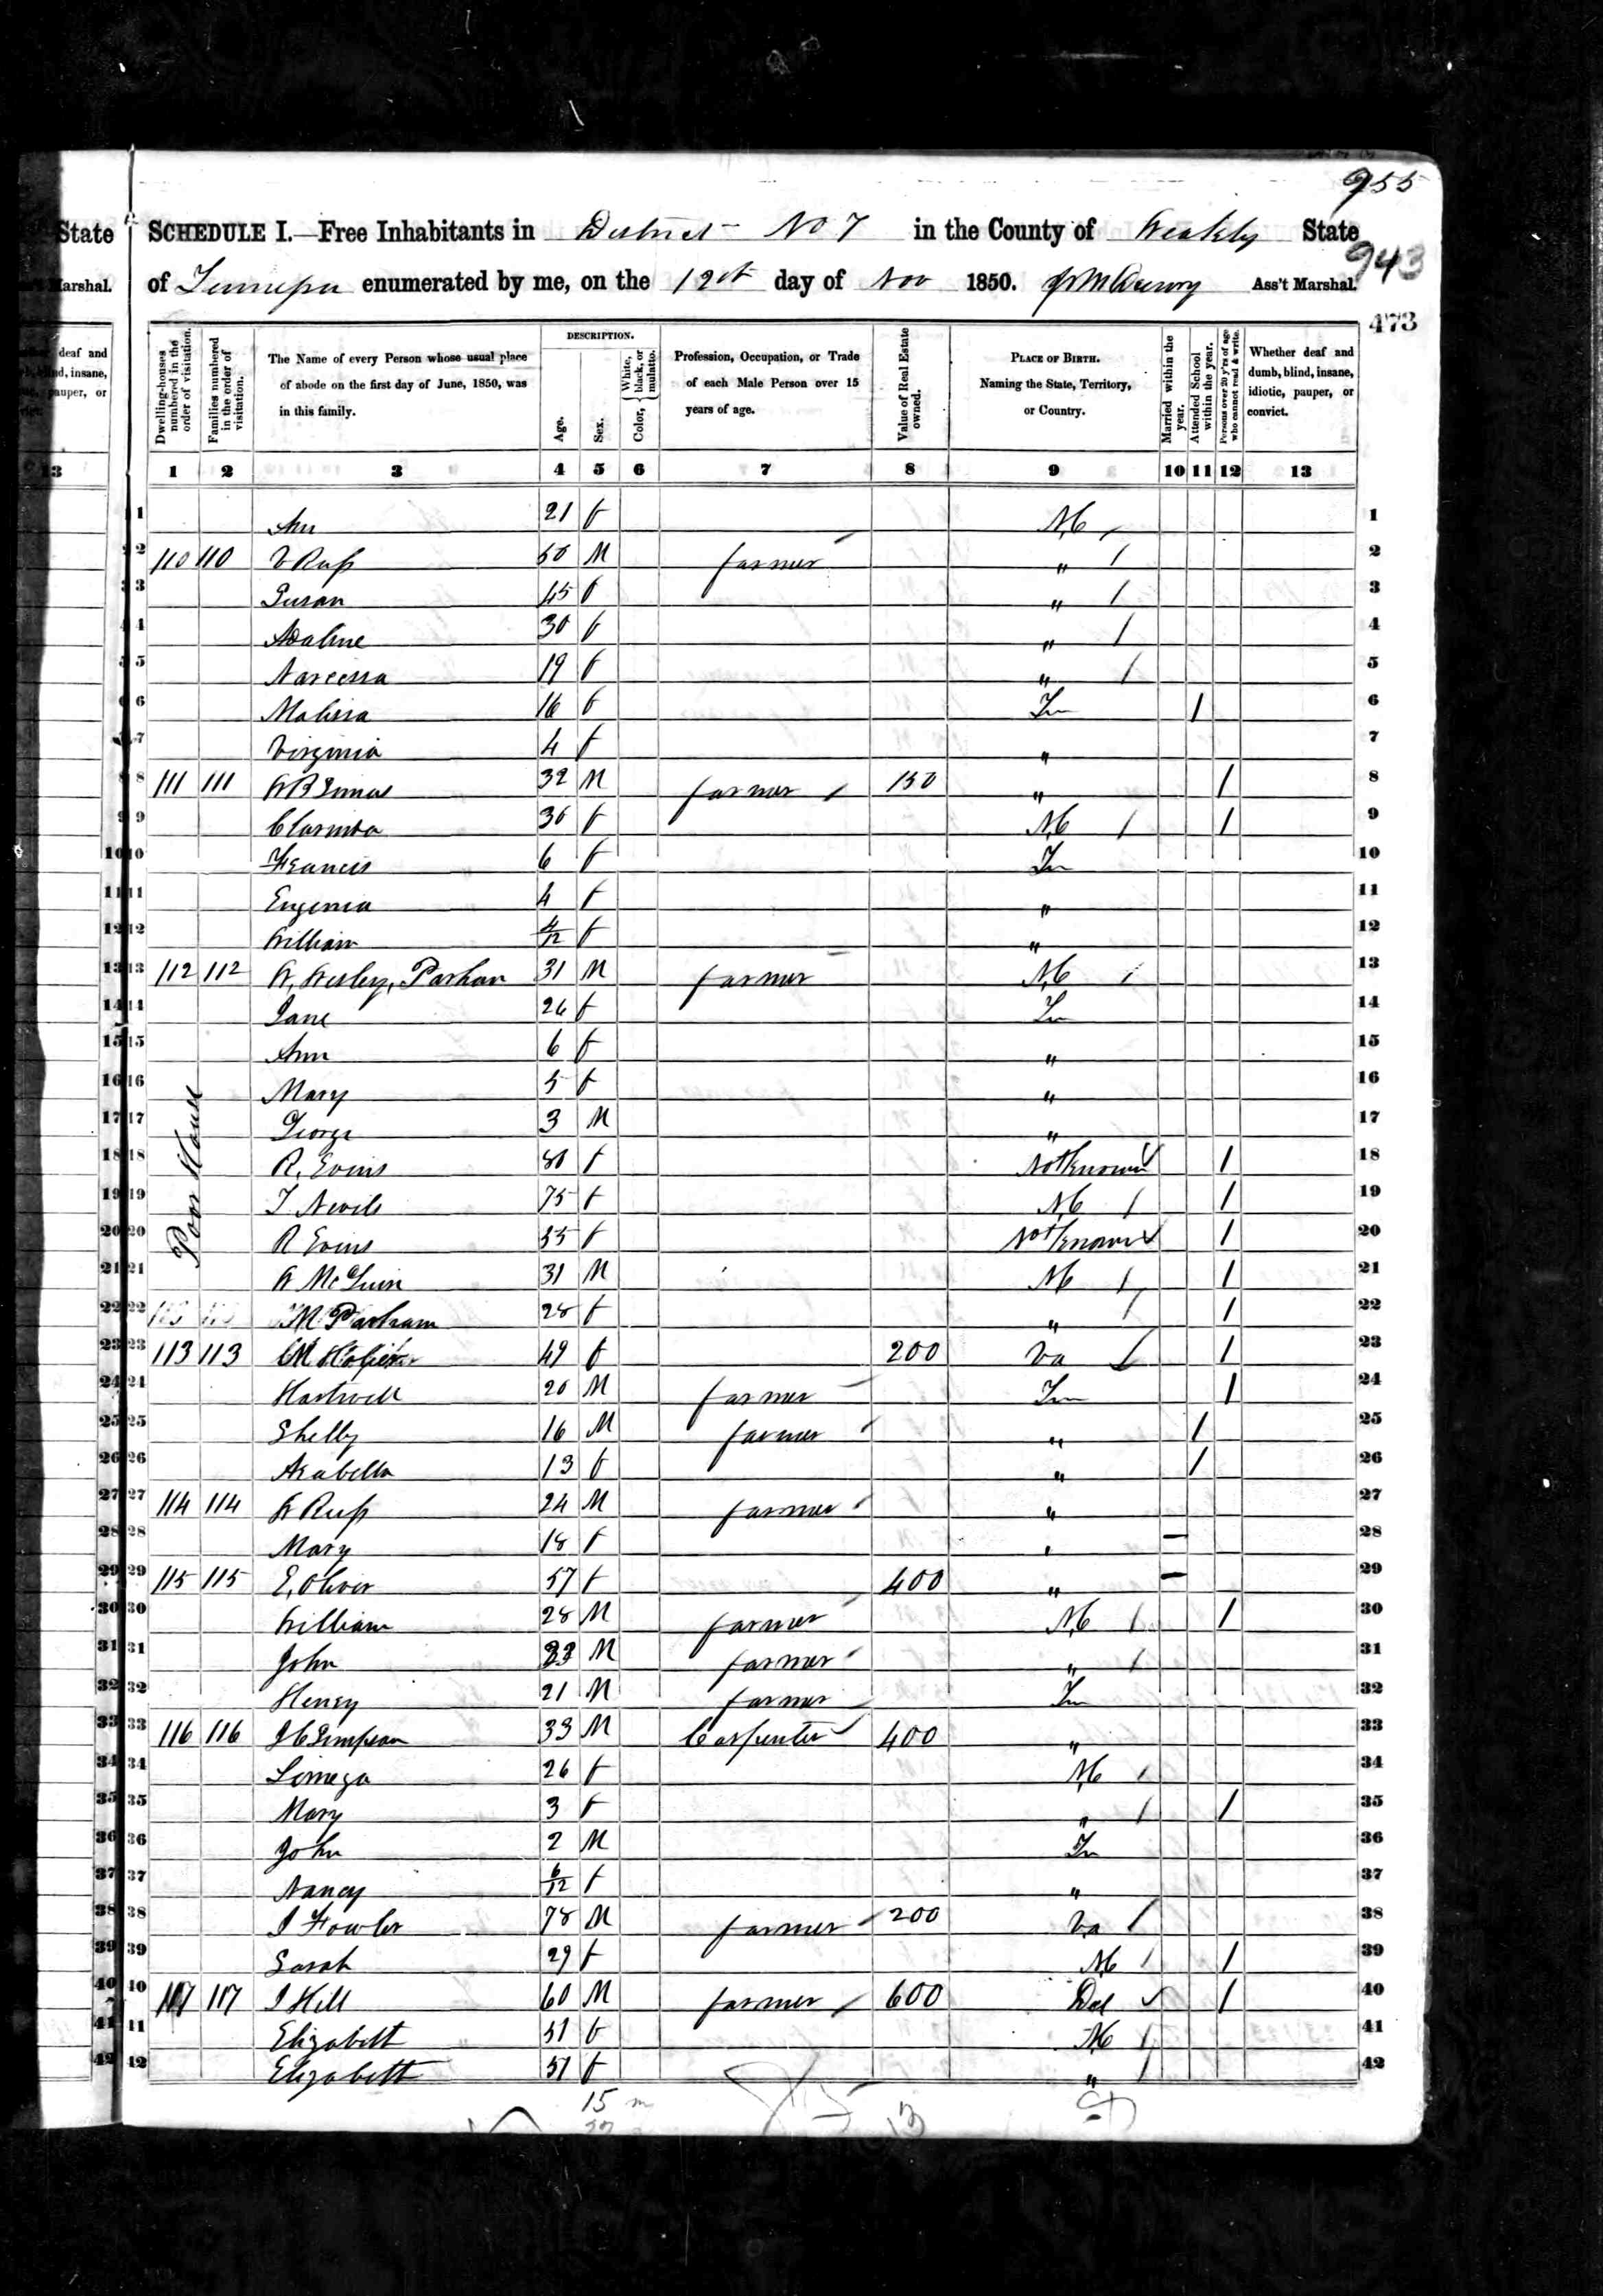 955
State SCHEDULE I.—Free Inhabitants in District No 7 in the County of Weakly State
943
Marshal. of Tennessee enumerated by me, on the 12th day of Nov 1850. Ass't Marshal.
473
Dwelling-houses numbered in the order of visitation.
Families numbered in the order of visitation.
The Name of every Person whose usual place of abode on the first day of June, 1850, was in this family.
DESCRIPTION.
Age.
Sex.
Color, { White, black, or mulatto.
Profession, Occupation, or Trade of each Male Person over 15 years of age.
Value of Real Estate owned.
PLACE OF BIRTH. Naming the State, Territory, or Country.
Married within the year.
Attended School within the year.
Persons over 20 y'rs of age who cannot read & write.
Whether deaf and dumb, blind, insane, idiotic, pauper, or convict.
1 2 3 4 5 6 7 8 9 10 11 12 13
1 Ann 21 f NC 1
2 110 110 V Russ 50 M farmer " / 2
3 Susan 45 f " / 3
4 Adaline 30 f " / 4
5 Narcessa 19 f " / 5
6 Malissa 16 f Tn 1 6
7 Virginia 4 f " 7
8 111 111 32 M farmer 150 " 1 8
9 Clarinda 30 f NC / 1 9
10 Francis 6 f Tn 10
11 Eugenia 4 f " 11
12 William 4/12 f " 12
13 112 112 W, Wesley, Parham 31 M farmer NC / 13
14 Jane 26 f Tn 14
15 Ann 6 f " 15
16 Mary 5 f " 16
17 George 3 M " 17
Poor House
18 R, Evins 80 f Not known 1 18
19 T Nevils 75 f NC / 1 19
20 R Evins 55 f Not known 1 20
21 W McGuin 31 M NC / 1 21
22 M Parham 28 f " / 1 22
23 113 113 49 f 200 Va / 1 23
24 Hartwell 20 M farmer Tn 1 24
25 Shelly 16 M farmer " 1 25
26 Arabella 13 f " 1 26
27 114 114 W Russ 24 M farmer " 27
28 Mary 18 f " – 28
29 115 115 E, Oliver 57 f 400 " – 29
30 William 28 M farmer NC / 1 30
31 John 23 M farmer " / 31
32 Henry 21 M farmer Tn 32
33 116 116 J C Simpson 33 M Carpenter 400 " 33
34 Limega 26 f NC / 34
35 Mary 3 f " / 1 35
36 John 2 M Tn 36
37 Nancy 6/12 f " 37
38 J Fowler 78 M farmer 200 Va / 38
39 Sarah 29 f NC / 1 39
40 117 117 J Hill 60 M farmer 600 Del 1 40
41 Elizabett 51 f NC / 41
42 Elizabett 51 f " / 42
15 m